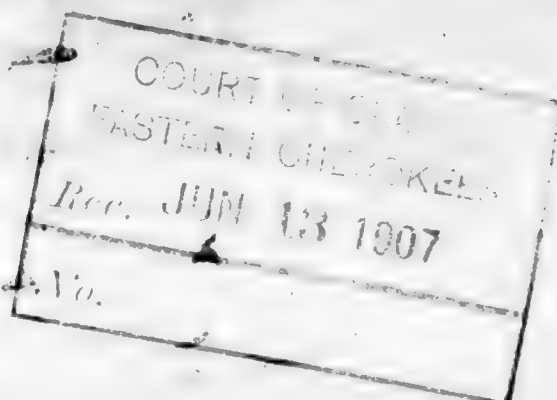 COURT OF CLA
EASTERN CHEROKEES
Rec. JUN 13 1907
No.